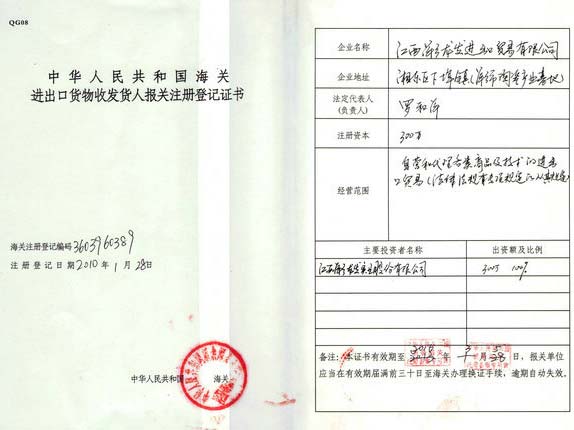 QG08
中华人民共和国海关
进出口货物收发货人报关注册登记证书
海关注册登记编码 3603960389
注册登记日期 2010 年 1 月 28 日
中华人民共和国 海关
企业名称 江西萍乡龙发进出口贸易有限公司
企业地址 湘东区下埠镇
法定代表人
(负责人) 罗和萍
注册资本 300万
经营范围 自营和代理各类商品及技术的进出口贸易
主要投资者名称 出资额及比例
有限公司 300万 100%
备注:本证书有效期至 年 月 28 日,报关单位
应当在有效期届满前三十日至海关办理换证手续,逾期自动失效。